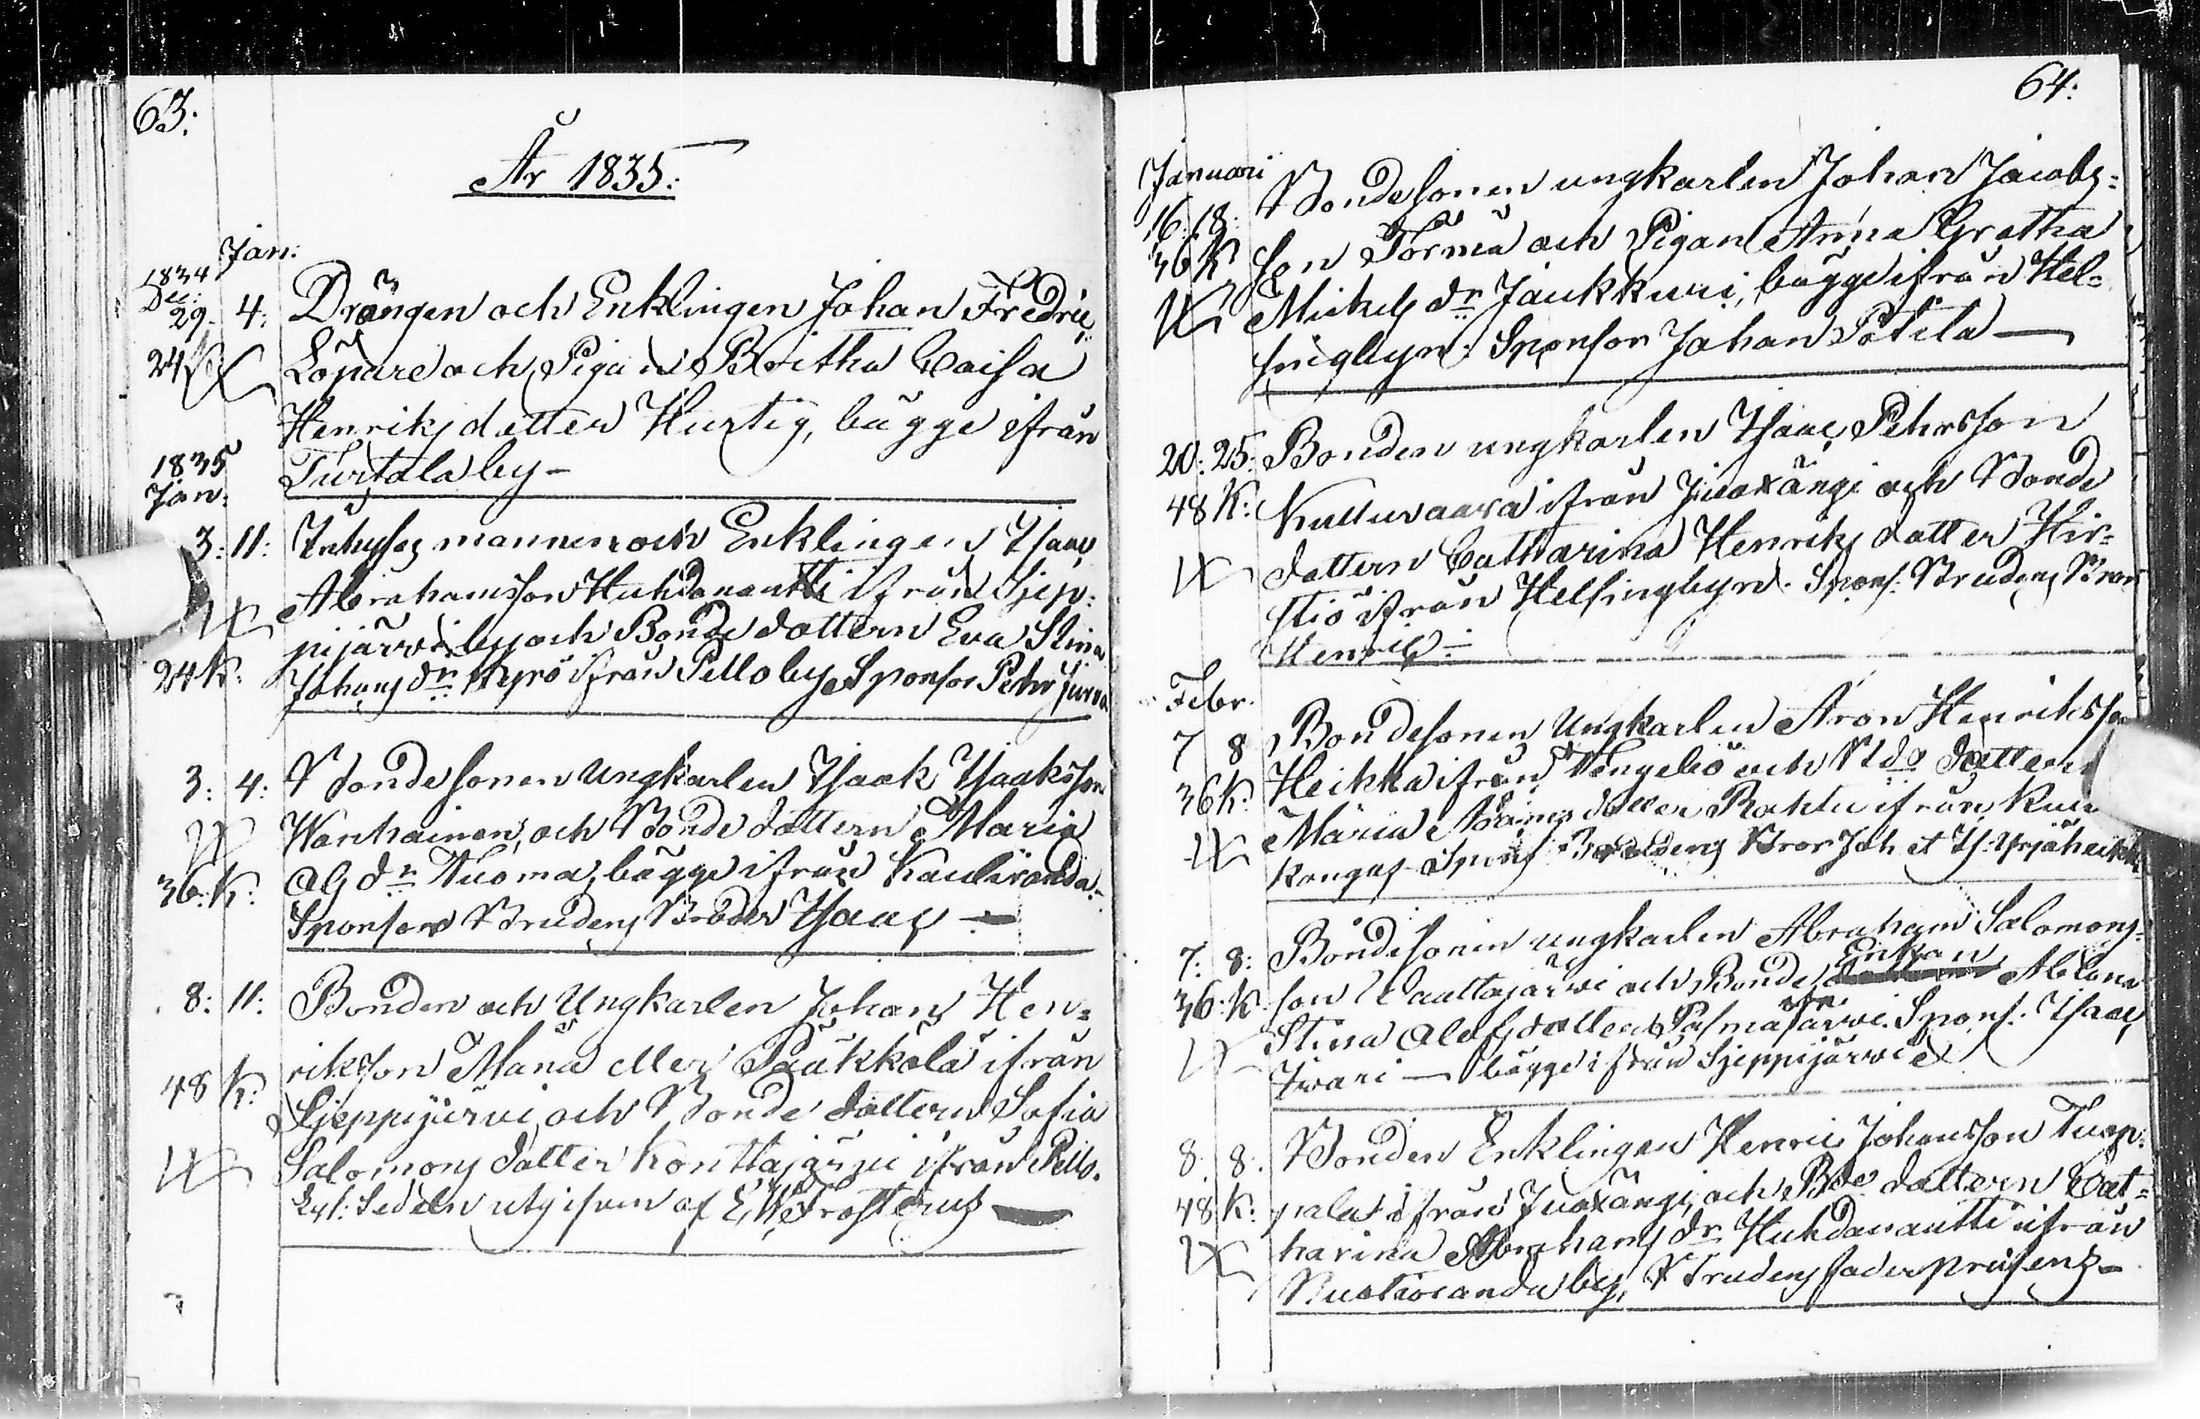 63:
År 1835:
Jan:
1834
Dec:
29. 4. Drängen och Enklingen Johan Fredric
24 K Löpare och Pigan Britha Caisa
Henriks dotter Hurtig, bägge ifrån
Turtola by -
1835
Jan:
3: 11: Inhyses mannen och Enklingen Isaac
Abrahamsson Huhdanantti ifrån Sjep-
pijärvi by och Bonde dottern Eva Stina
24 K: Johans dr: Kyrö ifrån Pello by. Sponsor Petter
3: 4: Bondesonen Ungkarlen Isaak Isaksson
Wanhainen, och Bonde dottern Maria
36: K: Ols dr: Tuoma, bägge ifrån Kauliranda.
Sponsor Brudens Broder Isaac —
8: 11: Bonden och Ungkarlen Johan Hen=
rikson Mänä eller Pääkkölä ifrån
48 K: Sjeppijärvi och Bonde dottern Sofia
Salomons dotter Konttajärvi ifrån Pello.
Lys: Sedeln utgifven af E. W. Frosterus —
64:
Januari
16. 18: Bondesonen ungkarlen Johan Jacobs=
36 K son Törmä och Pigan Anna Gretha
Mickels dr: Jaukkuri, bägge ifrån Hel=
singbyn: Sponsor Johan —
20: 25: Bonden ungkarlen Isaac Pehrsson
48 K: Kulluvaara ifrån Juoxängi och Bonde
dottern Catharina Henriks dotter Hir=
stiö ifrån Helsingbyn. Spons: Brudens Bror
Henric —
Febr.
7 8 Bondesonen Ungkarlen Aron Henriksson
36 K: Heikka ifrån Tengeliö och Bde dottern
Maria dotter Rahtu ifrån
Kangas Spons Brudens Bror Joh et Is:
7: 8: Bondesonen ungkarlen Abraham Salomons=
Enkan
36: K son Vaattojärvi och Bonde
Stina Olofs dotter Pasmajärvi. Spons: Isaac
Iwari — bägge ifrån Sjeppijärvi
8: 8: Bonden Enklingen Henric Johansson Tuop=
48 K: pala ifrån Juoxängi, och Bde dottern Cat=
harina Abrahams dr Huhdanantti ifrån
by, Brudens fader præsens —